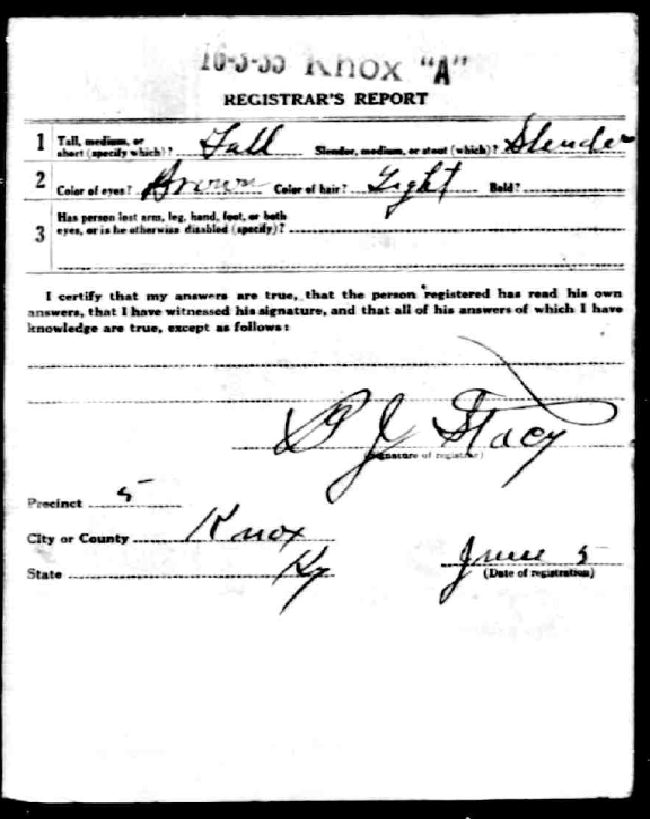 Knox "A"
REGISTRAR'S REPORT
1 Tall, medium, or short (specify which)? Tall Slender, medium, or stout (which)? Slender
2 Color of eyes? Brown Color of hair? Light Bald?
3 Has person lost arm, leg, hand, foot, or both
eyes, or is he otherwise disabled (specify)?
I certify that my answers are true, that the person registered has read his own
answers, that I have witnessed his signature, and that all of his answers of which I have
knowledge are true, except as follows:
J Stacy
(Signature of registrar)
Precinct 5
City or County Knox
State Ky
June 5
(Date of registration)